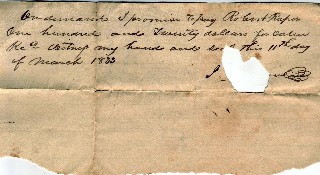 On demand I promise to pay Robert
One hundred and Twenty dollars for value
Recd Witness my hand and seal this 11th day
of March 1833
J